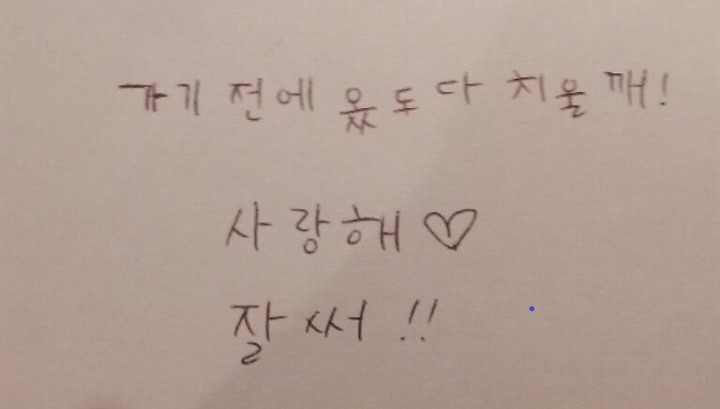 가기 전에 옸도 다 치울깨!
사랑해♡
잘써!!